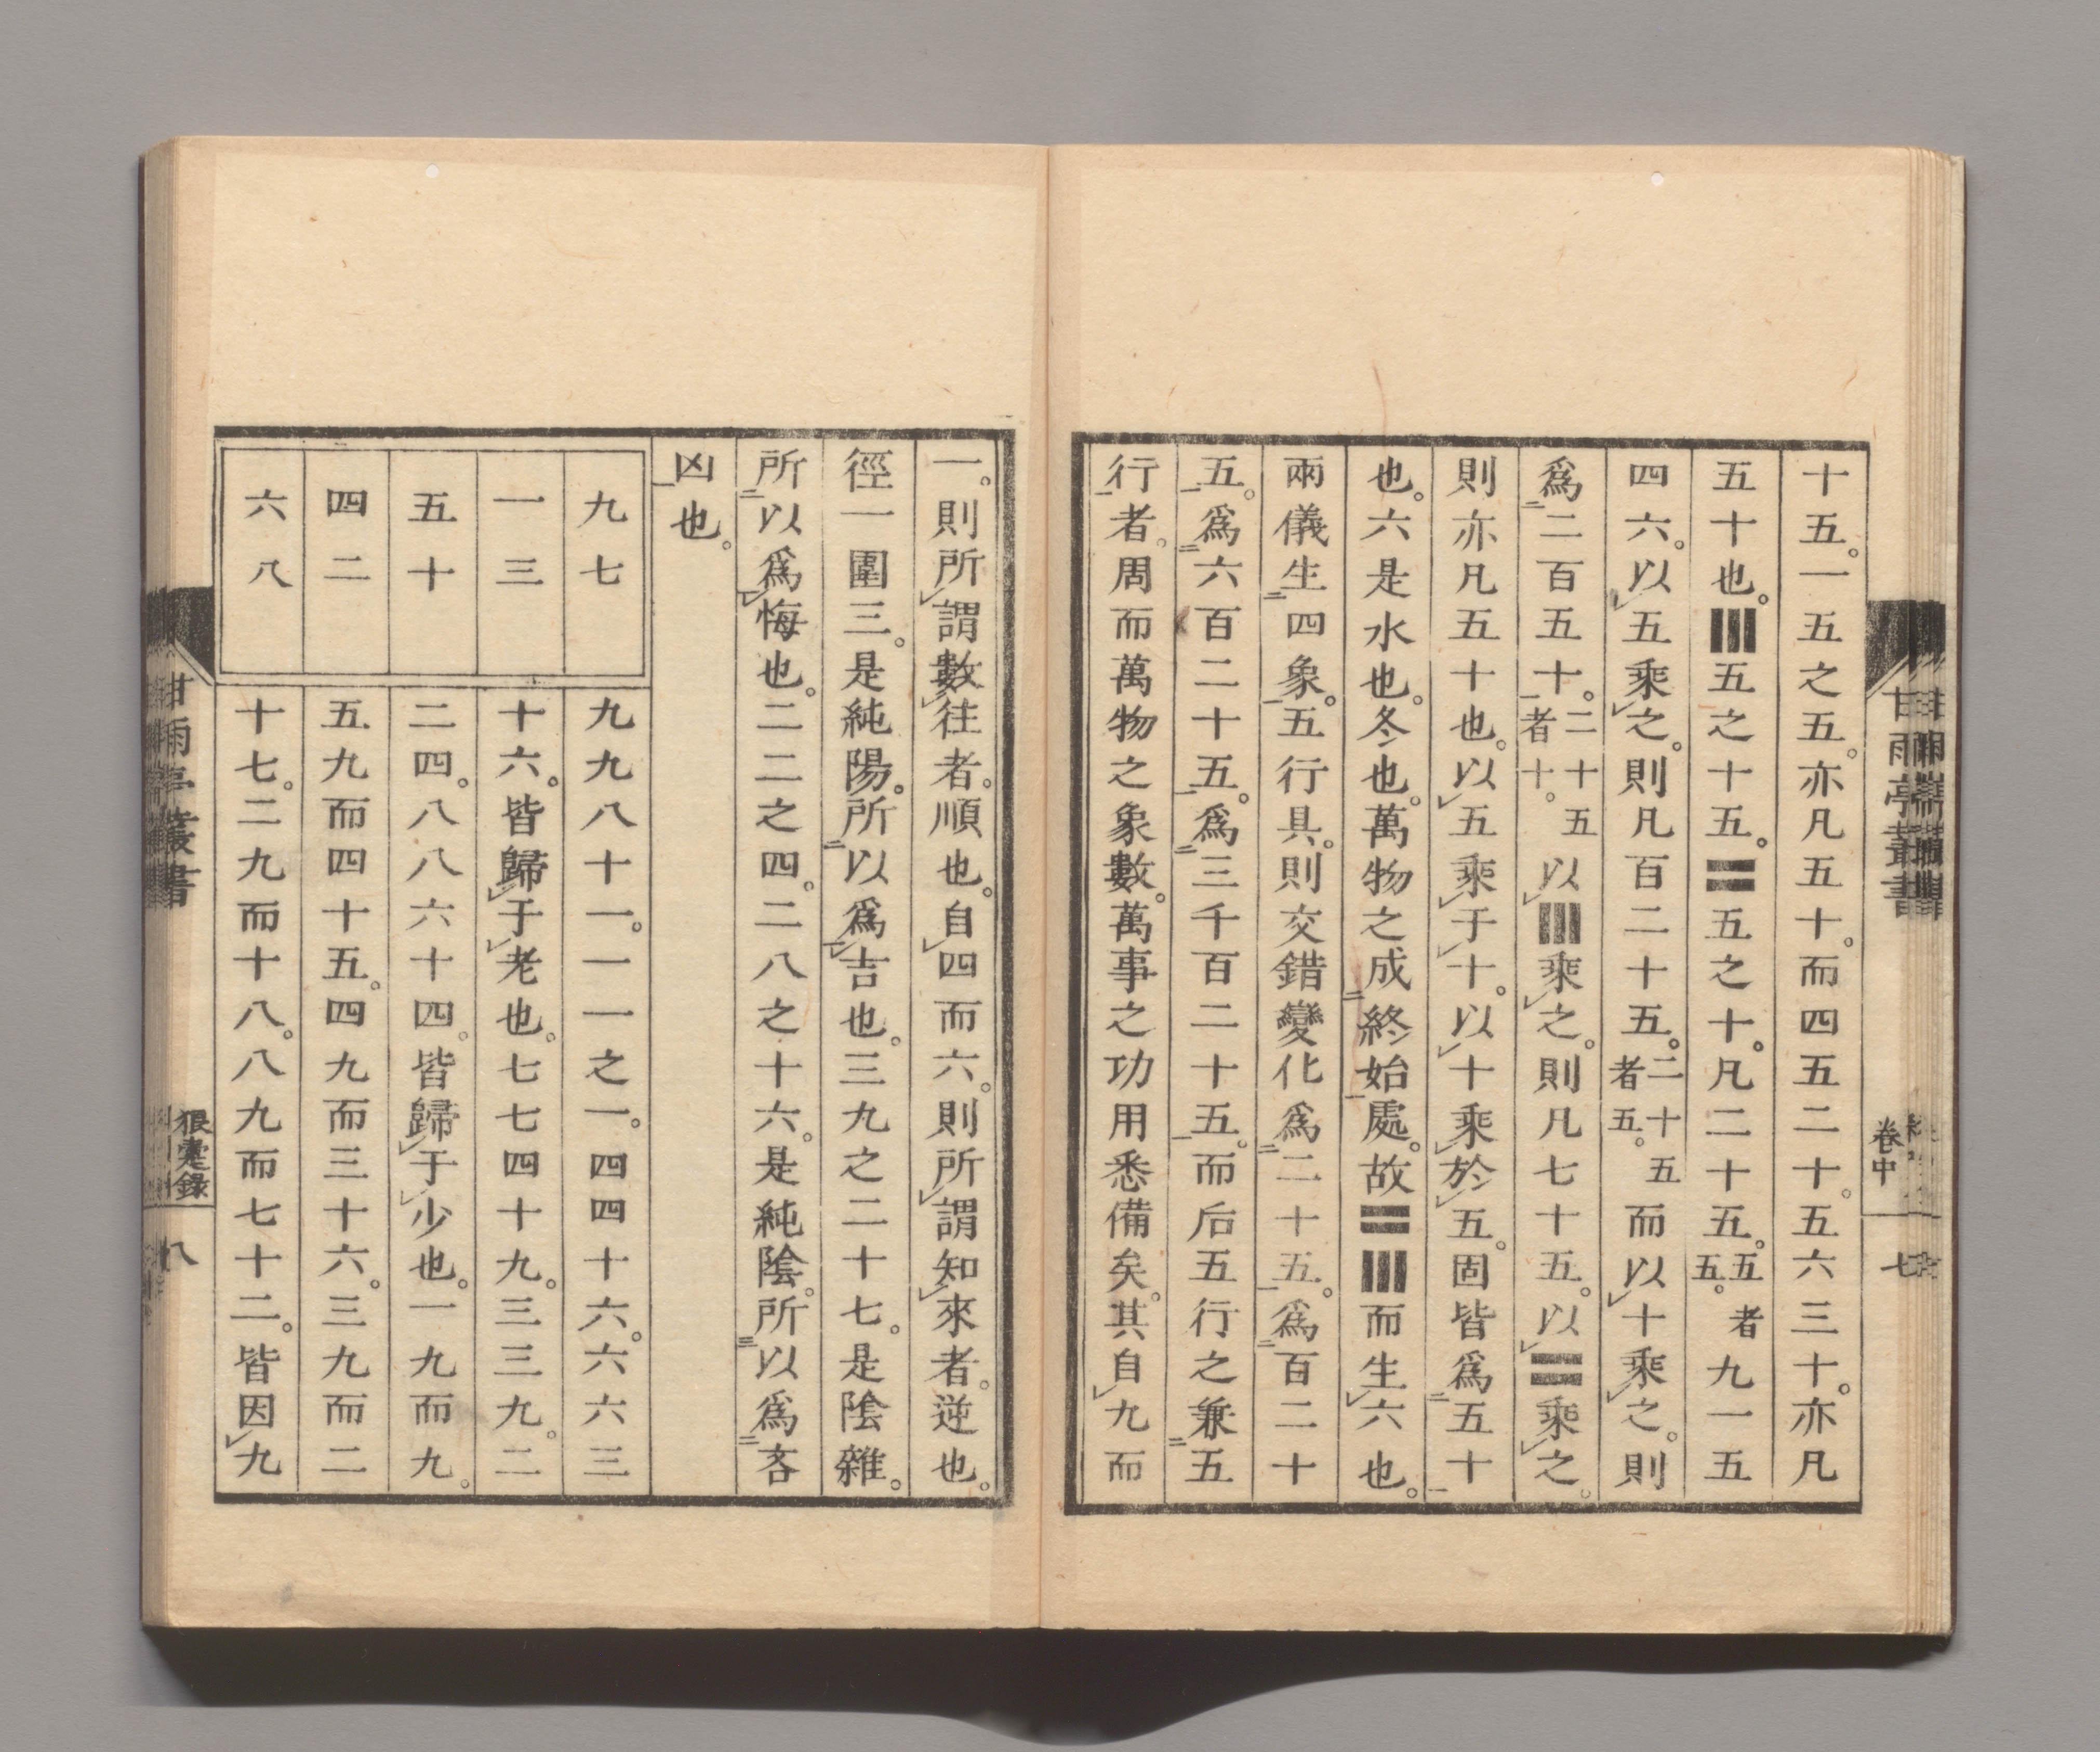 甘雨亭叢書
卷中
七
十五。一五之五。亦凡五十。而四五二十。五六三十。亦凡
五十也。〣五之十五。〓五之十。凡二十五。五者五。九一五
四六。以五乘之。則凡百二十五。二十五者五。而以十乘之。則
爲二百五十。二十五者十。以〣乘之。則凡七十五。以〓乘之。
則亦凡五十也。以五乘于十。以十乘於五。固皆爲五十
也。六是水也。冬也。萬物之成終始處。故〓〣而生六也。
兩儀生四象。五行具。則交錯變化爲二十五。爲百二十
五。爲六百二十五。爲三千百二十五。而后五行之兼五
行者。周而萬物之象數。萬事之功用悉備矣。其自九而
一。則所謂數往者。順也。自四而六。則所謂知來者。逆也。
徑一圍三。是純陽。所以爲吉也。三九之二十七。是陰雜。
所以爲悔也。二二之四。二八之十六。是純陰。所以爲吝
凶也。
九七
一三
五十
四二
六八
九九八十一。一一之一。四四十六。六六三
十六。皆歸于老也。七七四十九。三三九。二
二四。八八六十四。皆歸于少也。一九而九。
五九而四十五。四九而三十六。三九而二
十七。二九而十八。八九而七十二。皆因九
甘雨亭叢書
狼疐錄
八